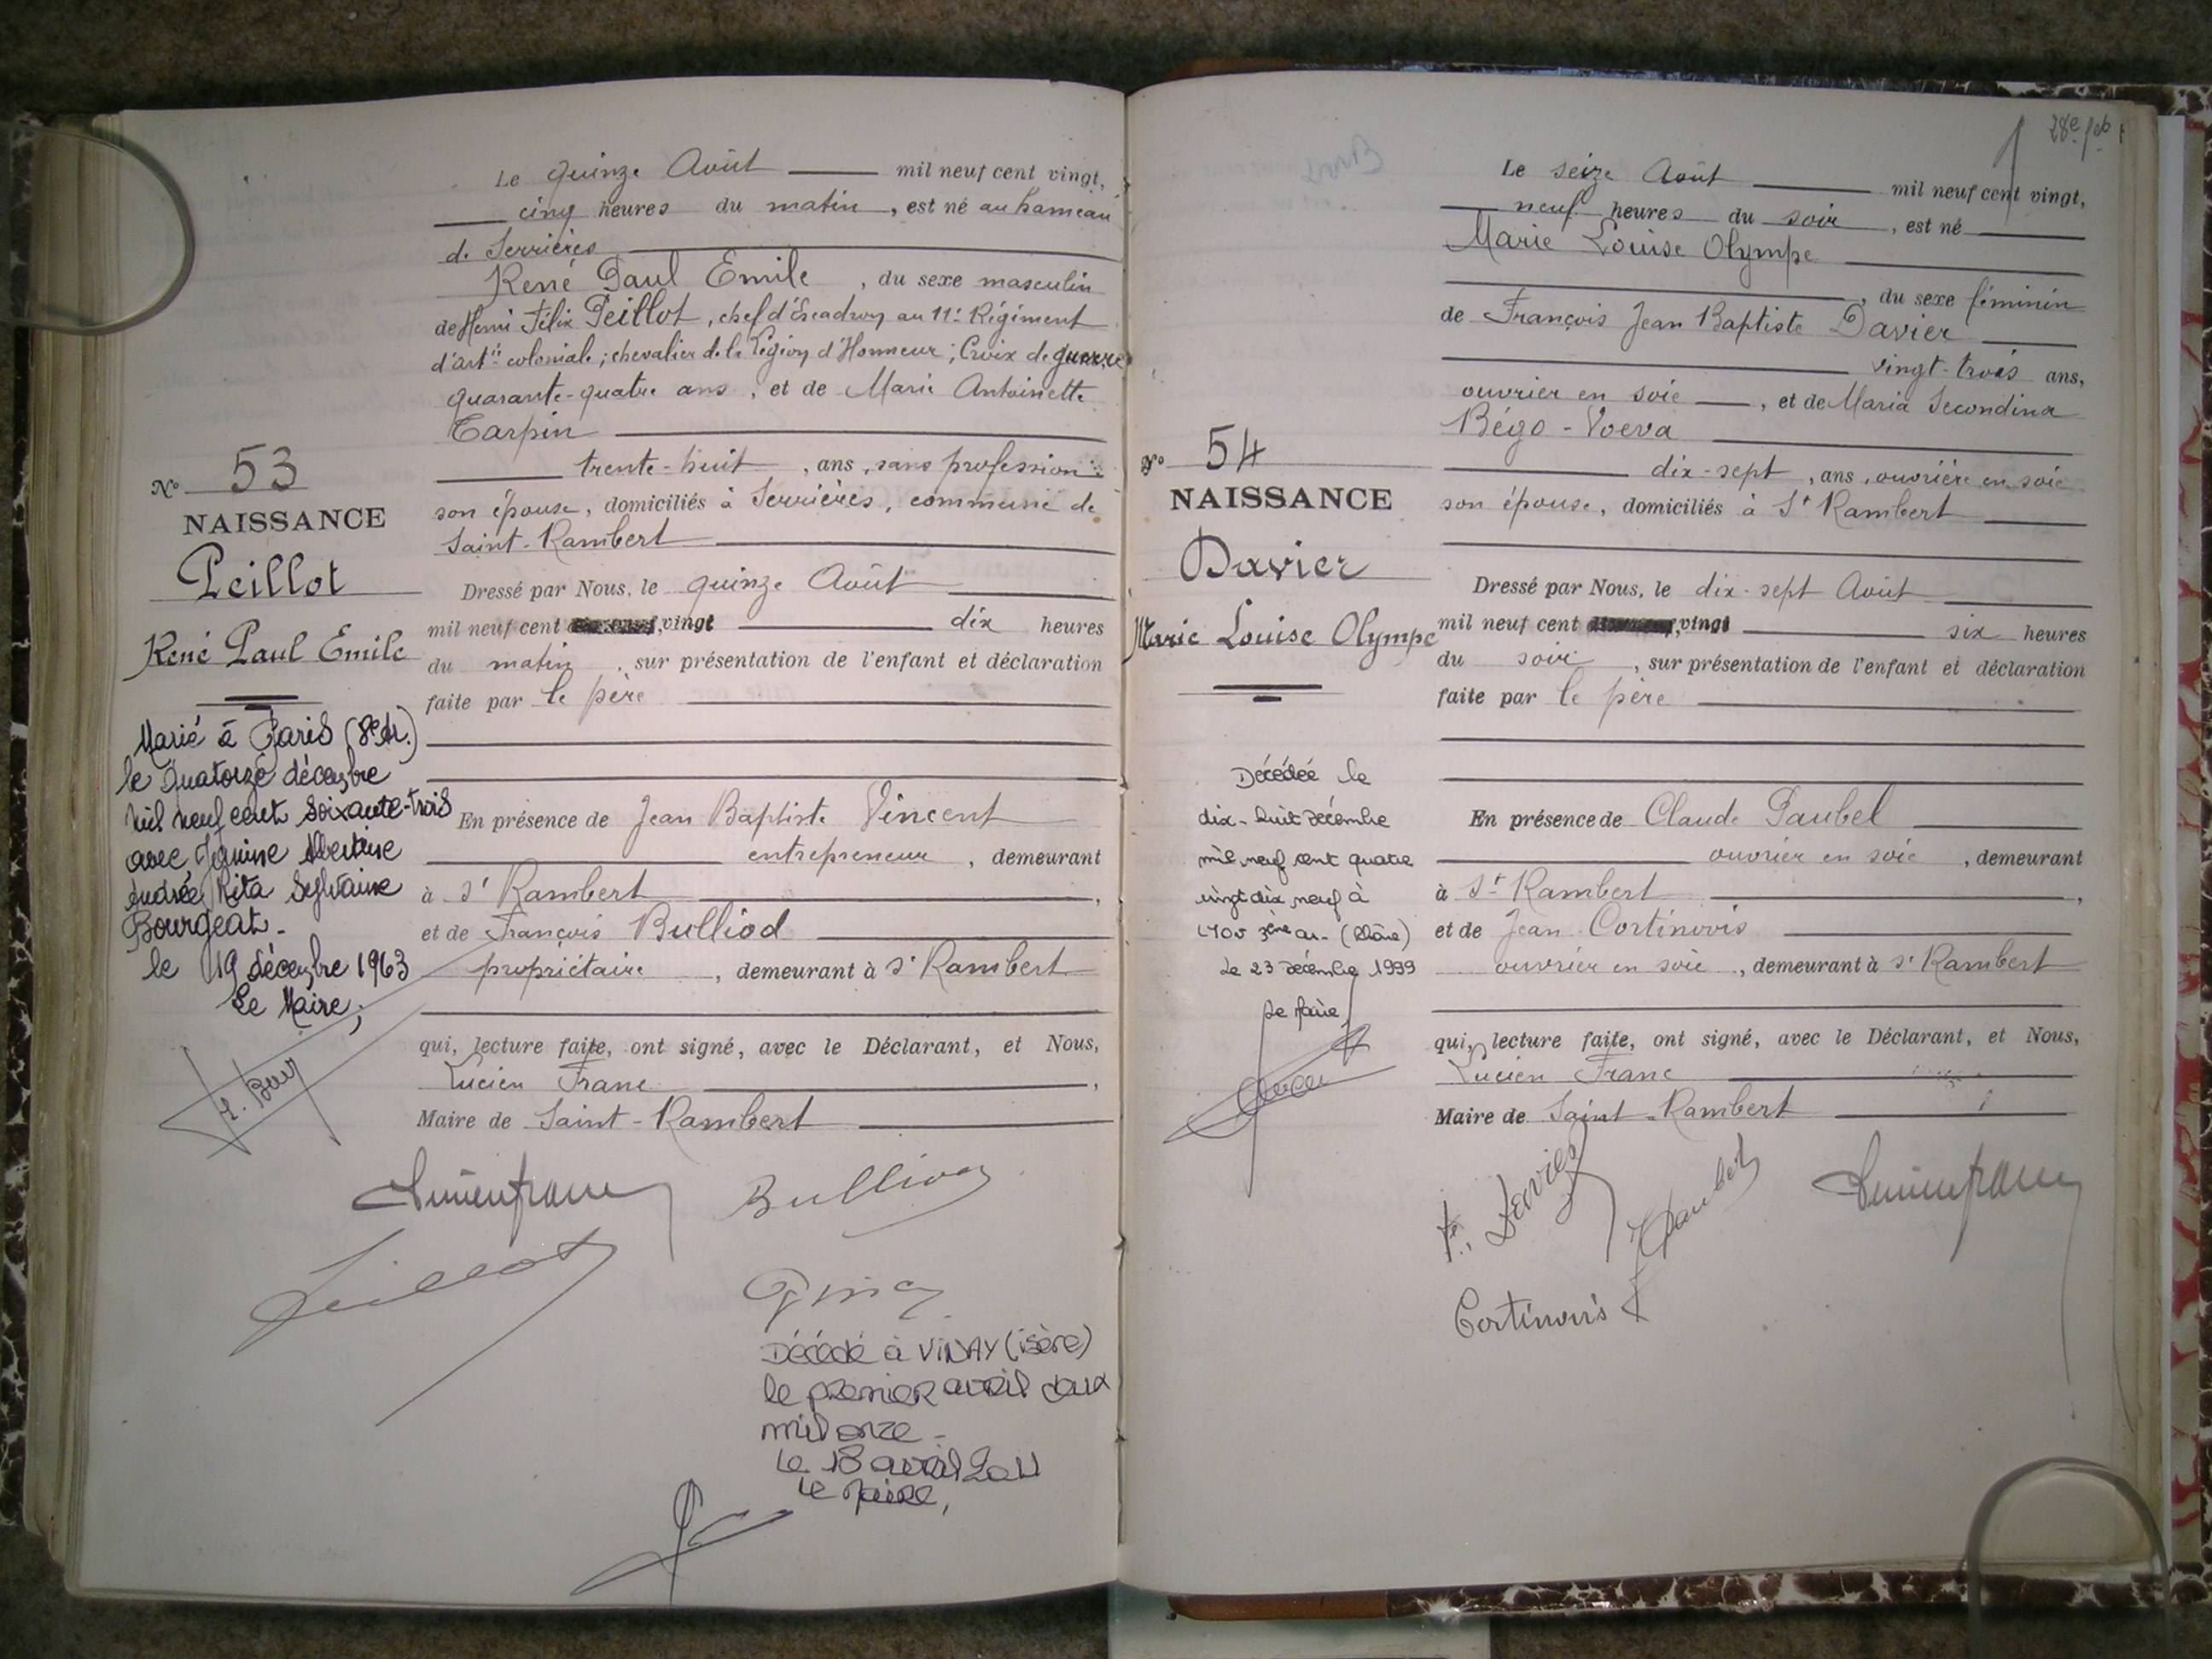 Le quinze Août mil neuf cent vingt,
cinq heures du matin, est né au hameau
de Serrières
René Paul Emile, du sexe masculin
de Henri Félix Peillot, chef d'Escadron au 11e Régiment
d'artie coloniale; chevalier de la Légion d'Honneur; Croix de guerre
quarante-quatre ans, et de Marie Antoinette
Tarpin
trente-huit, ans, sans profession
son épouse, domiciliés à Serrières, commune de
Saint-Rambert
Dressé par Nous, le quinze Août
mil neuf cent vingt dix heures
du matin, sur présentation de l'enfant et déclaration
faite par le père
En présence de Jean Baptiste Vincent
entrepreneur, demeurant
à St Rambert,
et de François Bulliod
propriétaire, demeurant à St Rambert
qui, lecture faite, ont signé, avec le Déclarant, et Nous,
Lucien Franc,
Maire de Saint-Rambert
No 53
NAISSANCE
Peillot
René Paul Emile
Marié à Paris (8e Ar.)
le quatorze décembre
mil neuf cent soixante-trois
avec Janine Albertine
Andrée Rita Sylvaine
Bourgeat.
le 19 décembre 1963
Le Maire,
Lucien franc
Bulliod
Peillot
Décédé à VINAY (isère)
le premier avril deux
mil onze -
Le 18 avril 2011
Le Maire,
28e
Le seize Août mil neuf cent vingt,
neuf heures du soir, est né
Marie Louise Olympe
, du sexe féminin
de François Jean Baptiste Davier
vingt-trois ans,
ouvrier en soie, et de Maria Secondina
Bégo-Voeva
dix-sept, ans, ouvrière en soie
son épouse, domiciliés à St Rambert
Dressé par Nous, le dix-sept Août
mil neuf cent vingt six heures
du soir, sur présentation de l'enfant et déclaration
faite par le père
En présence de Claude Paubel
ouvrier en soie, demeurant
à St Rambert,
et de Jean Cortinovis
ouvrier en soie, demeurant à St Rambert
qui, lecture faite, ont signé, avec le Déclarant, et Nous,
Lucien Franc
Maire de Saint-Rambert
No 54
NAISSANCE
Davier
Marie Louise Olympe
Décédée le
dix-huit décembre
mil neuf cent quatre
vingt dix neuf à
LYON 3ème ar. (Rhône)
Le 23 décembre 1999
Le Maire,
Davier
Paubel
Lucien franc
Cortinovis